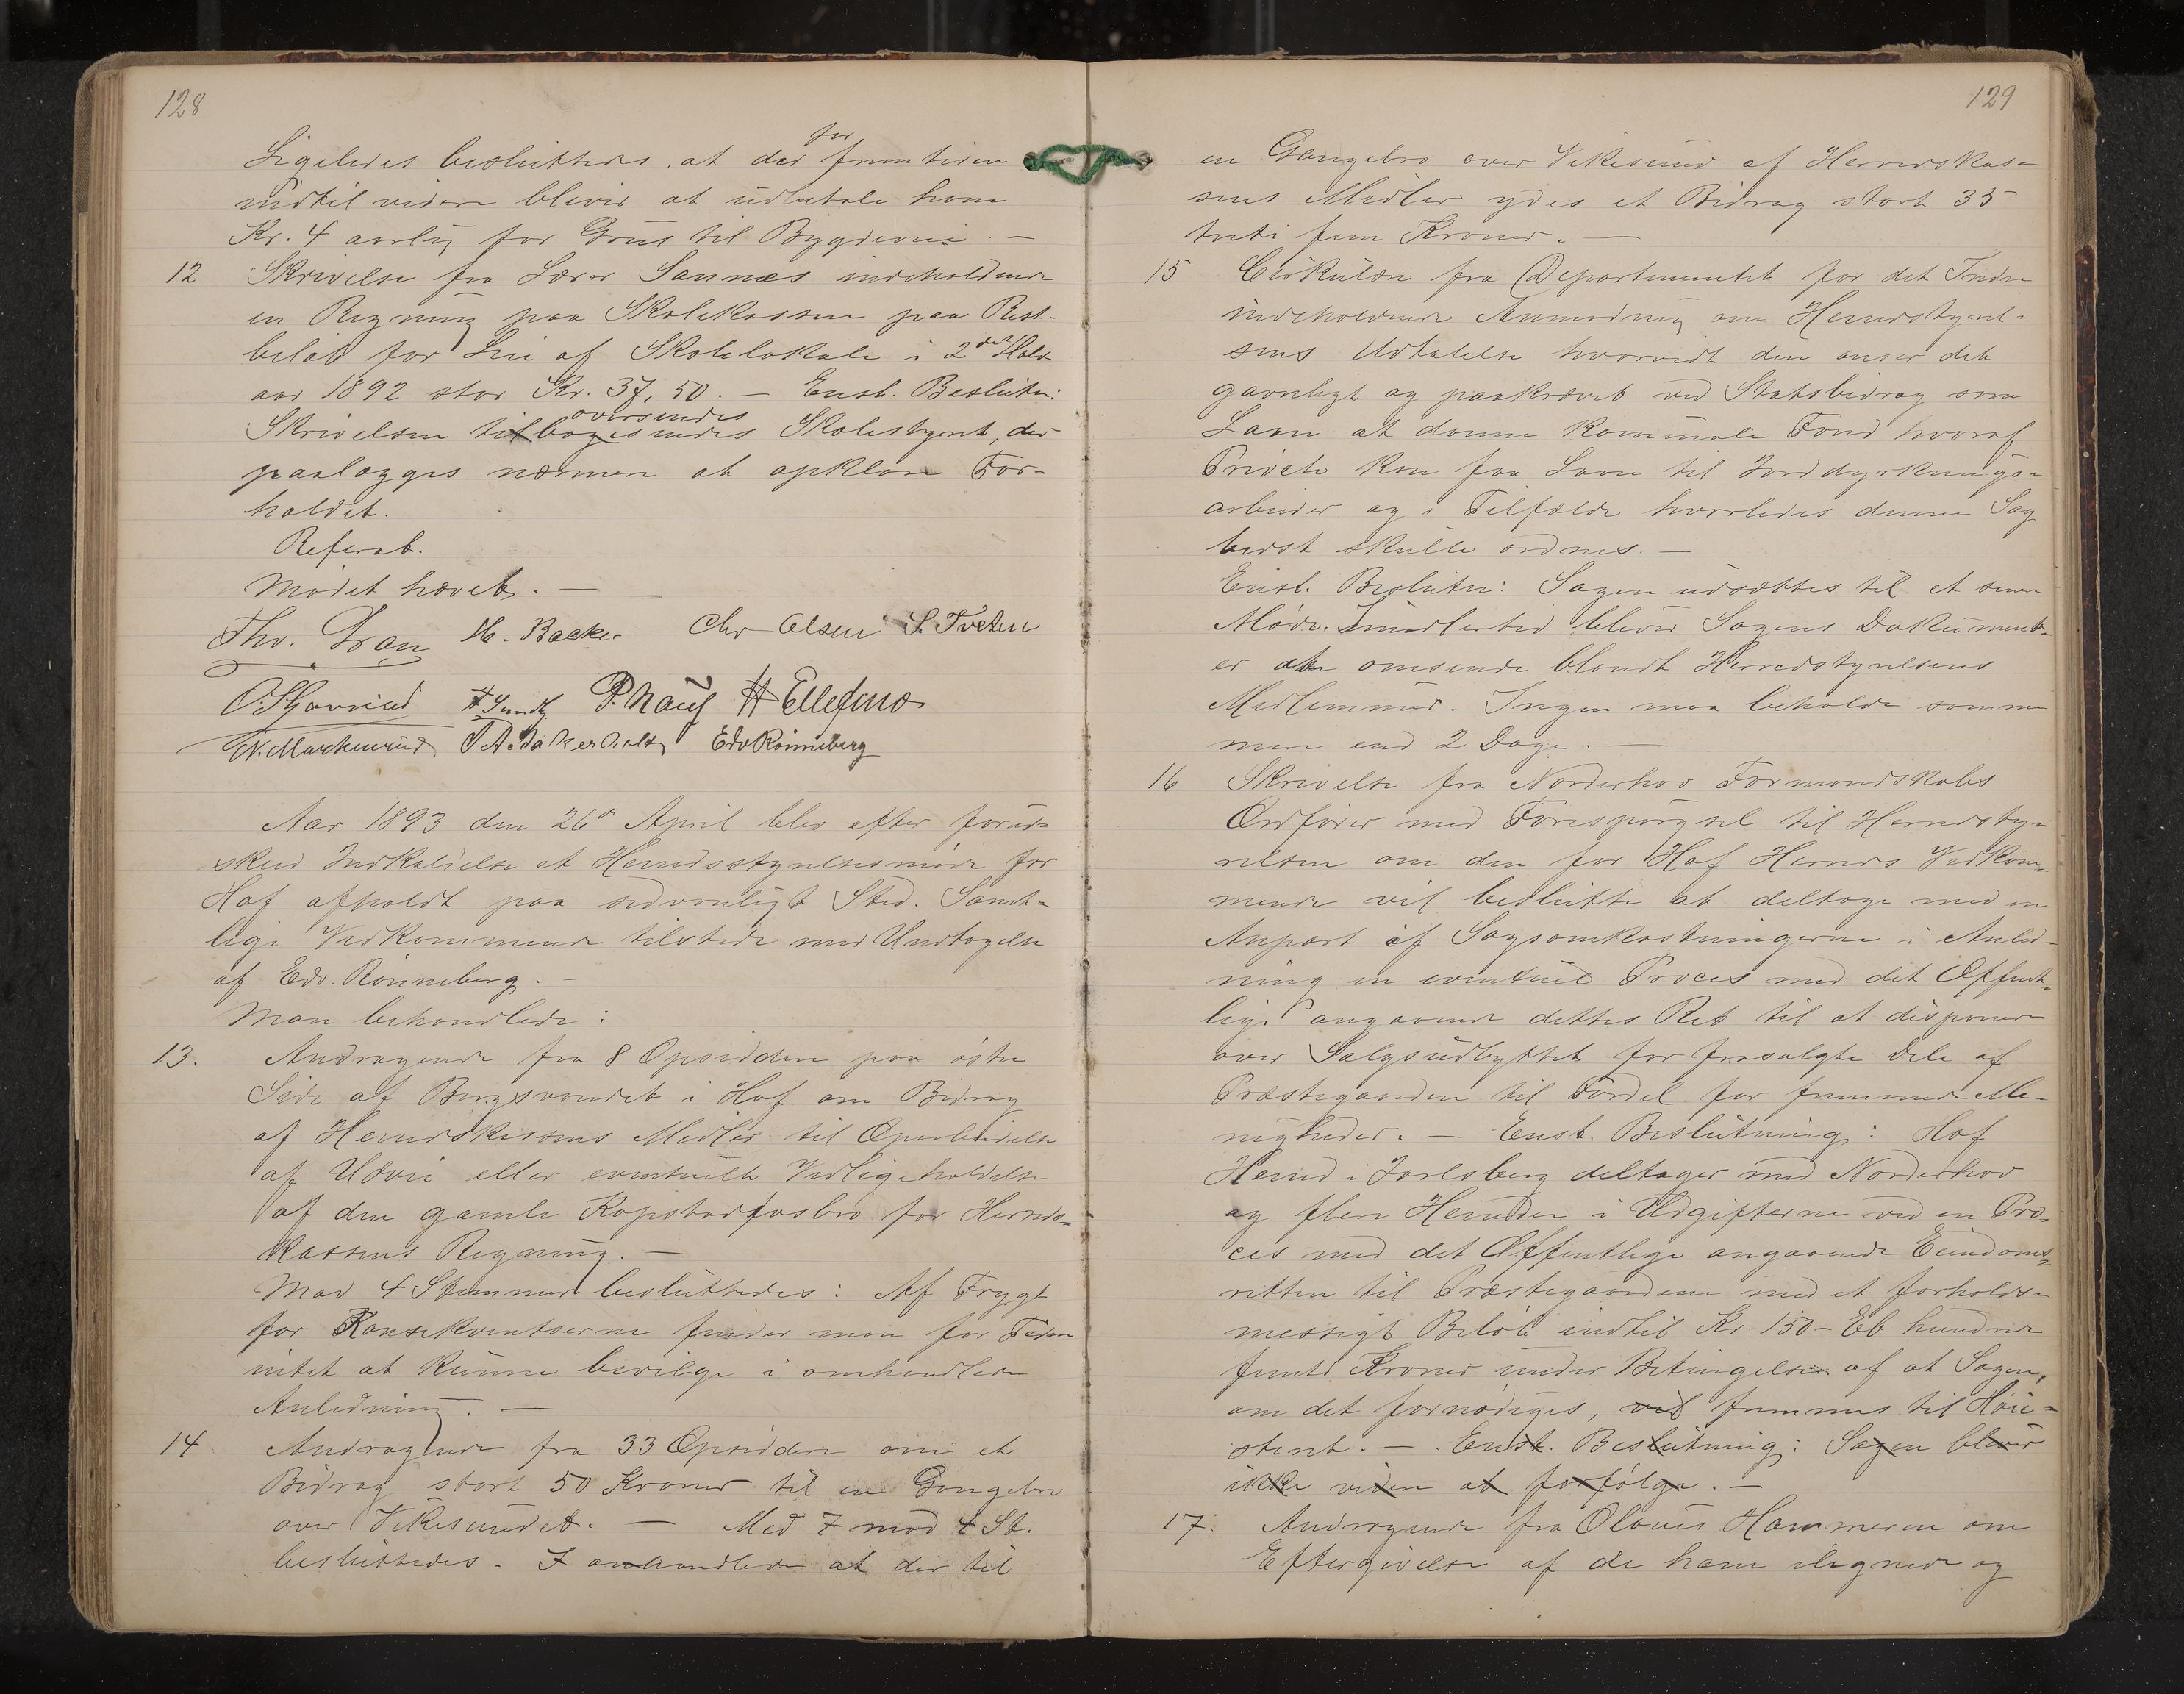 128
for
Ligeledes besluttedes at der fremtiden
indtil videre bliver at udbetale ham
Kr. 4 aarlig for Grus til Bygdevei. —
12 Skrivelse fra Lærer Sannes indeholdende
en Regning paa Skolekassen paa Rest-
beløb for Leie af Skolelokale i 2det Halv-
aar 1892 stor Kr. 37,50. — Enst. Beslutn:
oversendes
Skrivelsen tilbagesendes Skolestyret, der
paalægges nærmere at opklare For-
holdet.
Referat.
Mødet hævet. —
Thv. Dran H. Backe Chr Olsen S. Tveten
O. Skjavrud H Sundby P. Nauf H Ellefsen
N. Markerud A. Dakerholt Edv Rønneberg
Aar 1893 den 26de April blev efter forud-
skeed Indkaldelse et Herredsstyrelsesmøde for
Hof afholdt paa sedvanligt Sted. Samt-
lige Vedkommende tilstede med Undtagelse
af Edv. Rønneberg. —
Man behandlede:
13. Andragende fra 8 Opsiddere paa østre
Side af Bergsvandet i Hof om Bidrag
af Herredskassens Midler til Oparbeidelse
af Udvei eller eventuelt Vedligeholdelse
af den gamle Kopstadfosbro for Herreds-
kassens Regning. —
Mod 4 Stemmer besluttedes: Af Frygt
for Konsekventserne finder man for Tiden
intet at kunne bevilge i omhandlede
Anledning. —
14 Andragende fra 33 Opsiddere om et
Bidrag stort 50 Kroner til en Gangebro
over Vikesundet. — Med 7 mod 4 St.
besluttedes. I omhandlede at der til
129
en Gangebro over Vikesund af Herredskas-
sens Midler ydes et Bidrag stort 35
treti fem Kroner. —
15 Cirkulære fra Departementet for det Indre
indeholdende Anmodning om Herredstyrel-
sens Udtalelse hvorvidt den anser det
gavnligt og paakrævet ved Statsbidrag som
Laan at danne kommunale Fond hvoraf
Private kan faa Laan til Jorddyrknings-
arbeider og i Tilfælde hvorledes denne Sag
bedst skulle ordnes. —
Enst. Beslutn: Sagen udsættes til et senere
Møde. Imidlertid bliver Sagens Dokument-
er at omsende blandt Herredstyrelsens
Medlemmer. Ingen maa beholde samme
mere end 2 Dage. —
16 Skrivelse fra Norderhov Formandskabs
Ordfører med Forespørgsel til Herredsty-
relsen om den for Hof Herreds Vedkom-
mende vil beslutte at deltage med en
Anpart af Sagsomkostningerne i Anled-
ning en eventuel Proces med det Offent-
lige angaaende dettes Ret til at disponere
over Salgsudbyttet for frasalgte Dele af
Præstegaarden til Fordel for fremmede Me-
nigheder. — Enst. Beslutning: Hof
Herred i Jarlsberg deltager med Norderhov
og flere Herreder i Udgifterne ved en Pro-
ces med det Offentlige angaaende Eiendoms-
retten til Præstegaardene med et forholds-
messigt Beløb indtil Kr. 150 – Et hundrede
femti Kroner under Betingelse af at Sagen,
om det fornødiges, ved fremmes til Høie-
steret. — Enst. Beslutning: Sagen bliver
ikke videre at forfølge. —
17. Andragende fra Olaus Hammeren om
Eftergivelse af de ham ilignede og